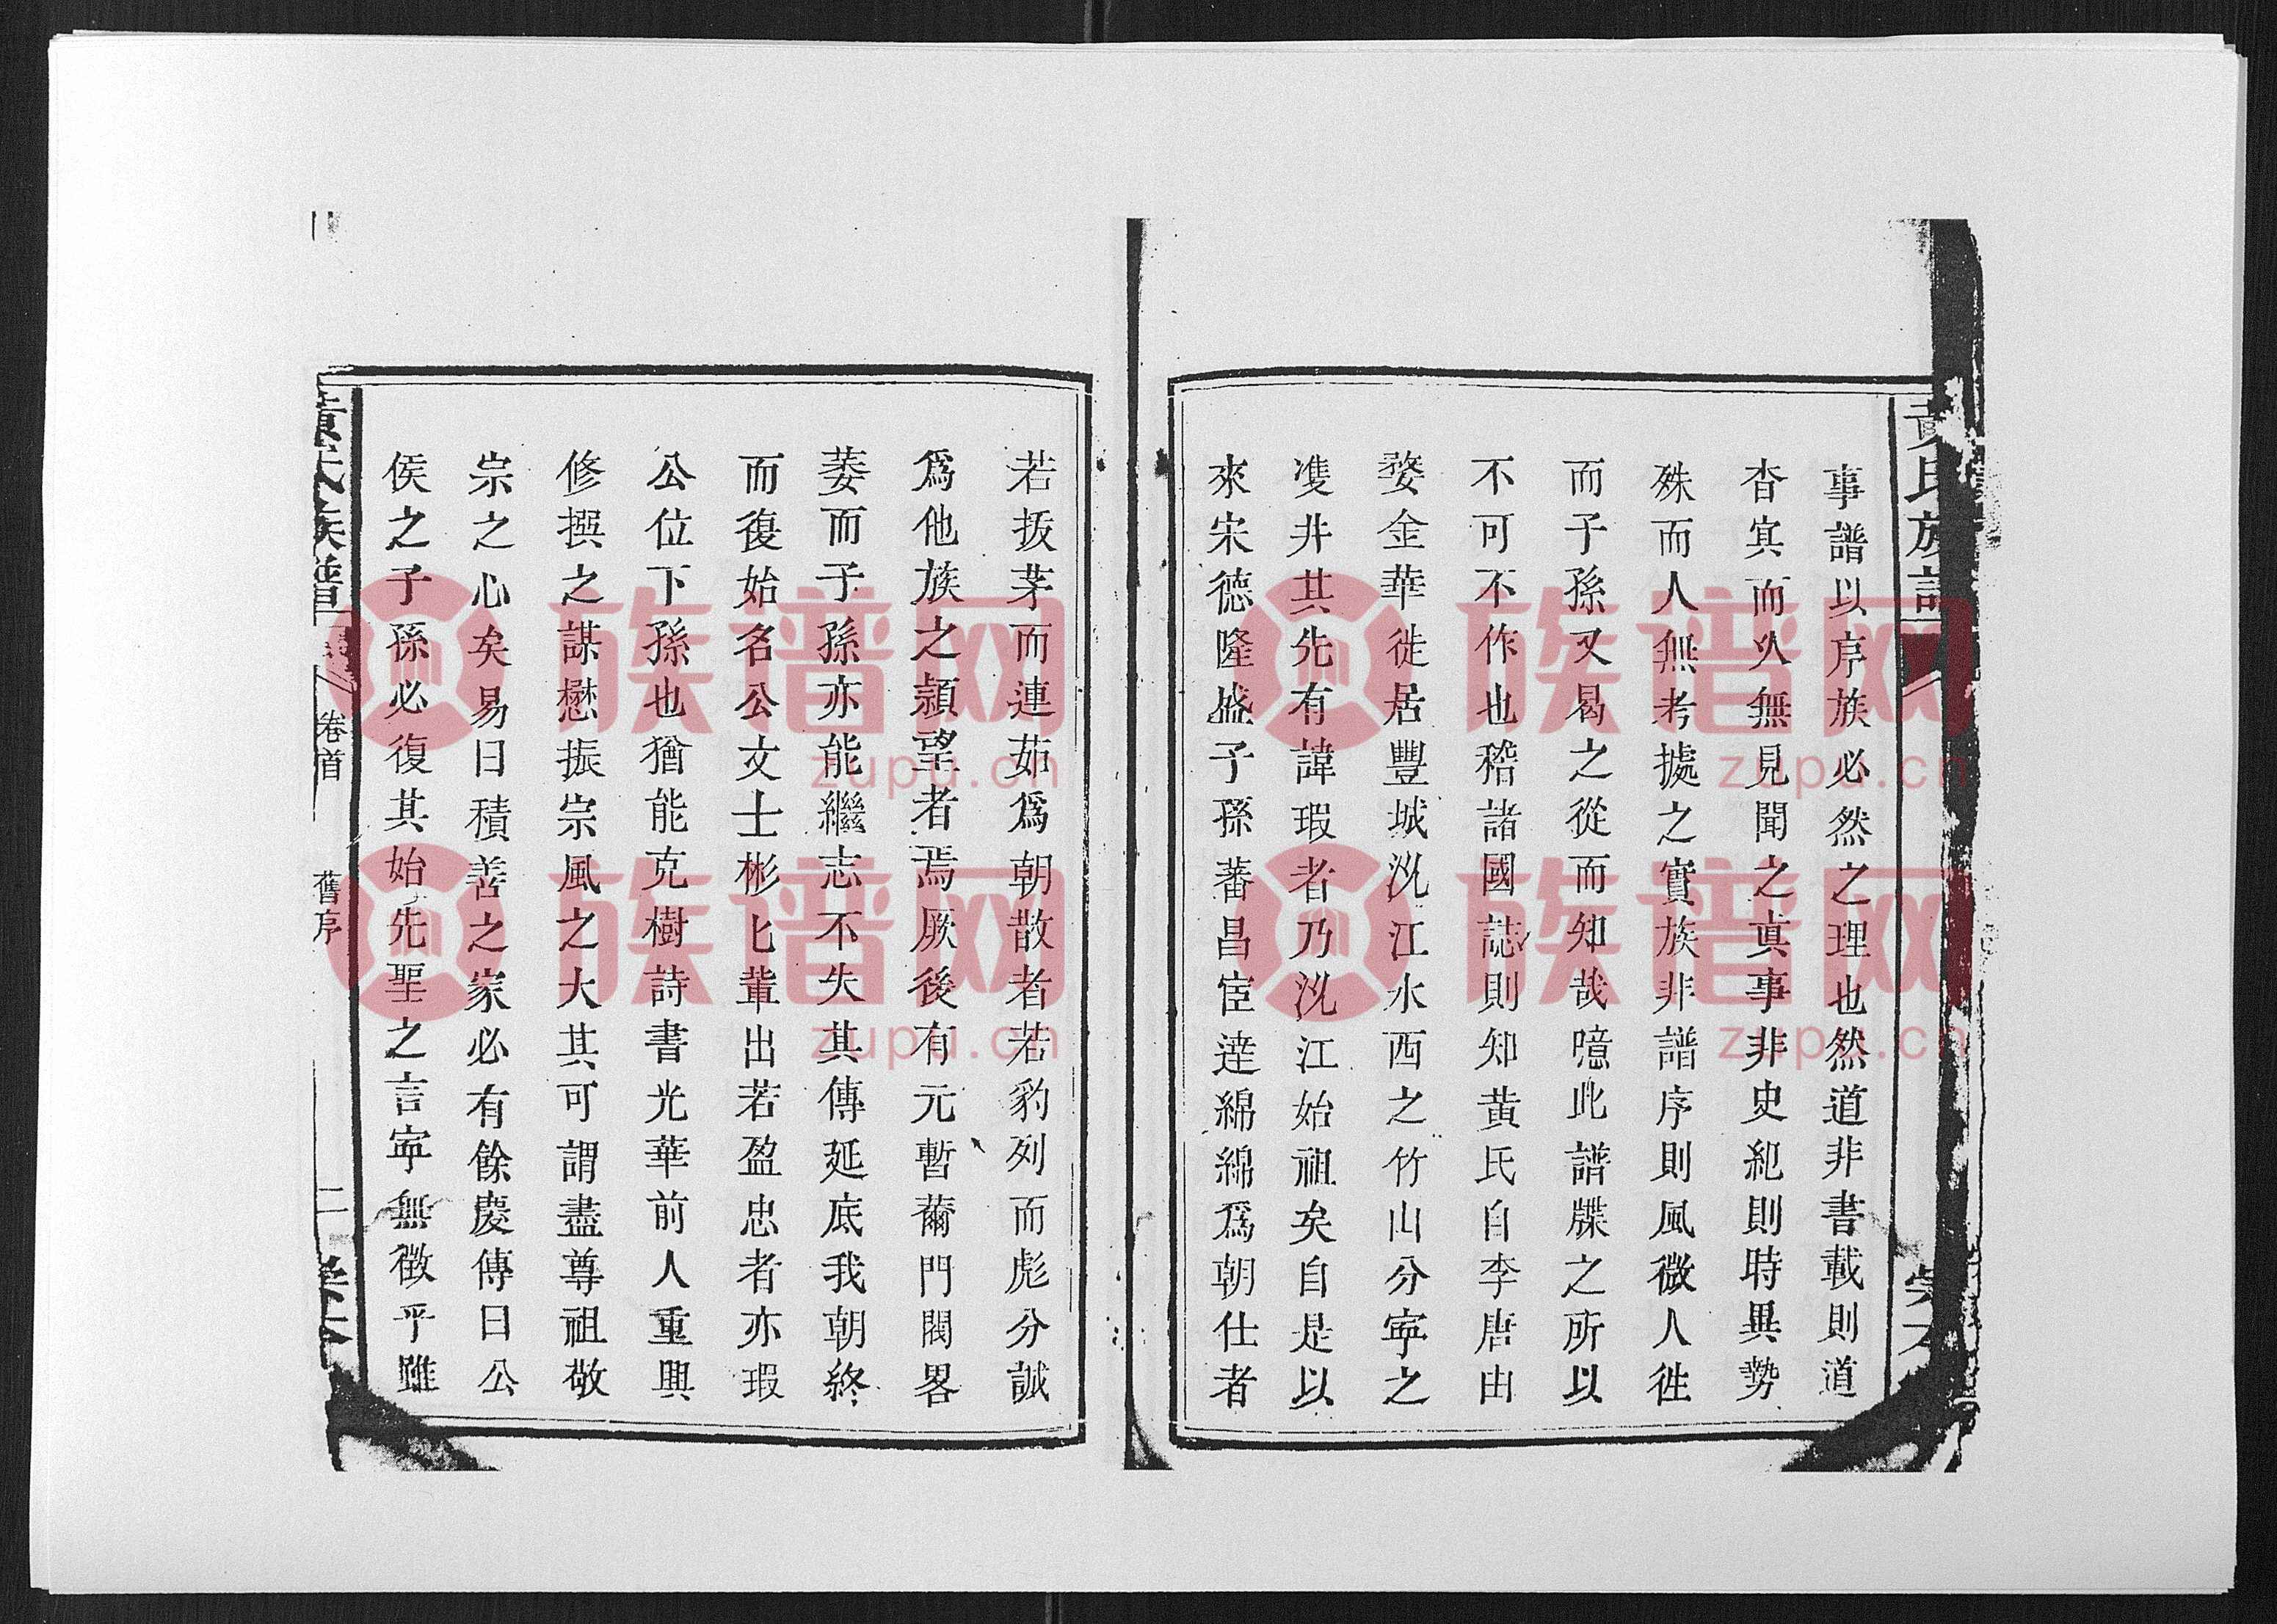 黃氏族譜
事譜以序族必然之理也然道非書載則道
杳㝠而乆無見聞之真事非史紀則時異勢
殊而人無考據之實族非譜序則風微人徃
而子孫又曷之從而知哉噫此譜牒之所以
不可不作也稽諸國誌則知黄氏自李唐由
婺金華徙居豐城氿江水西之竹山分寧之
䨇井其先有諱瑕者乃氿江始祖矣自是以
來宋德隆盛子孫蕃昌宦達綿綿爲朝仕者
若拔茅而連茹爲朝散者若豹列而彪分誠
爲他族之顙望者焉厥後有元暫薾門閥畧
萎而子孫亦能繼志不失其傳延底我朝終
而復始名公文士彬匕輩出若盈忠者亦瑕
公位下孫也猶能克樹詩書光華前人重興
修撰之謀懋振宗風之大其可謂盡尊祖敬
宗之心矣易曰積善之家必有餘慶傳曰公
侯之子孫必復其始先聖之言寧無徵乎雖
黃氏族譜
卷首
舊序
二
族譜网
zupu.cn
族譜网
zupu.cn
族譜网
zupu.cn
族譜网
zupu.cn